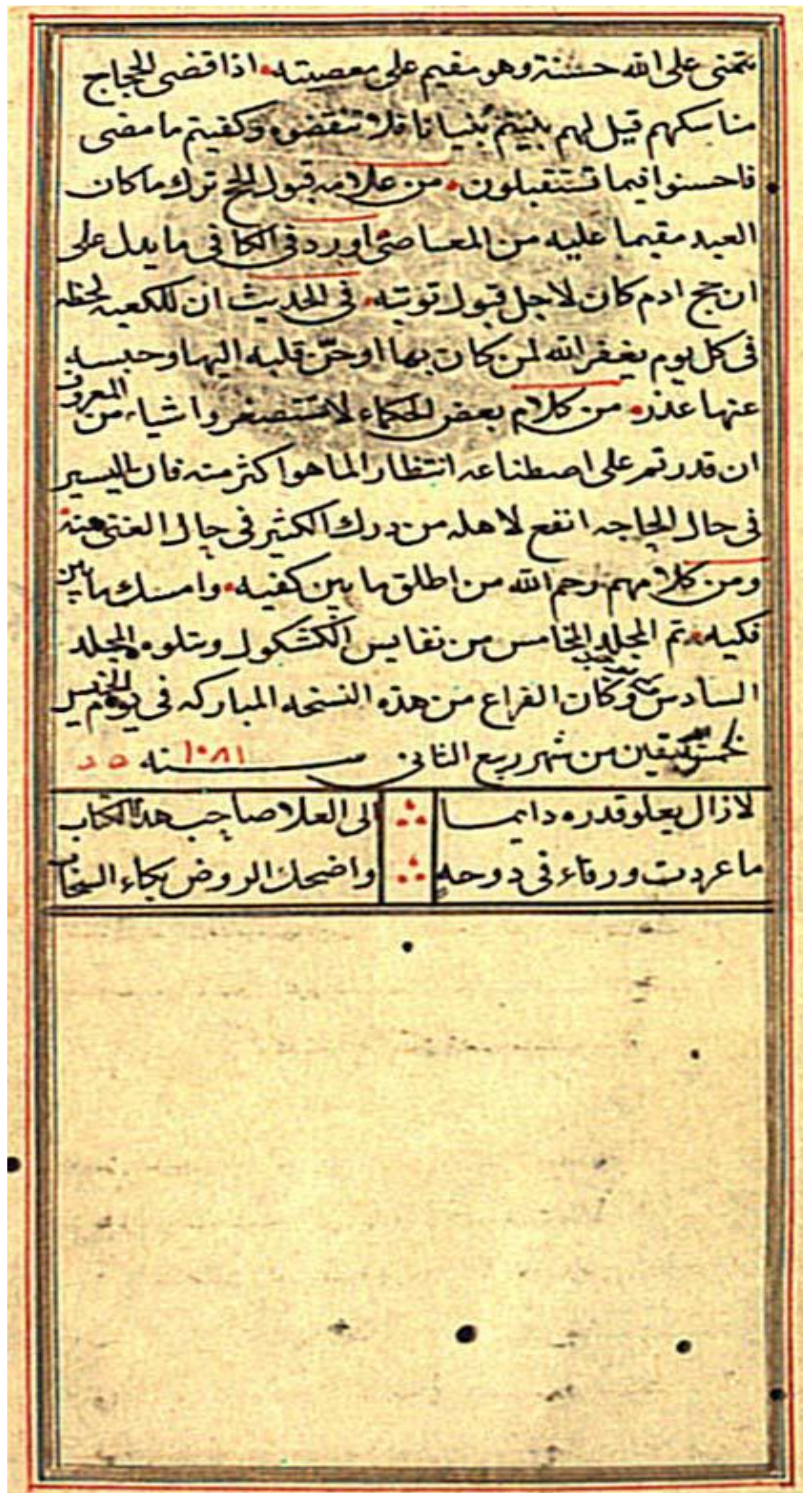 يتمنى على الله حسنة وهو مقيم على معصيته اذا قضى الحجاج
مناسكهم قيل لهم بنيتم بُنيانا فلا تنقضوه وكفيتم ما مضى
فاحسنوا فيما تستقبلون من علامه قبول الحج ترك ما كان
العبد مقيما عليه من المعاصى اورد فى الكافى ما يدل على
ان حج ادم كان لاجل قبول توبته فى الحديث ان للكعبه لحظه
فى كل يوم يغفر الله لمن كان بها او حنّ قلبه اليها وحبسه
عنها عذر من كلام بعض الحكماء لا تستصغروا شياء من المعروف
ان قدرتم على اصطناعه انتظار الما هو اكثر منه فان اليسير
فى حال الحاجه انفع لاهله من درك الكثير فى حال الغنى
ومن كلامهم رحم الله من اطلق ما بين كفيه وامسك ما بين
فكيه تم المجلد الخامس من نفايس الكشكول ويتلوه المجلد
السادس وكان الفراغ من هذه النسخه المباركه فى يوم الخميس
لخمس بقين من شهر ربيع الثانى سنه ١٠٨١
لا زال يعلو قدره دايما الى العلا صاحب هذ الكتاب
ما غردت ورقاء فى دوحه واضحك الروض بكاء السحاب